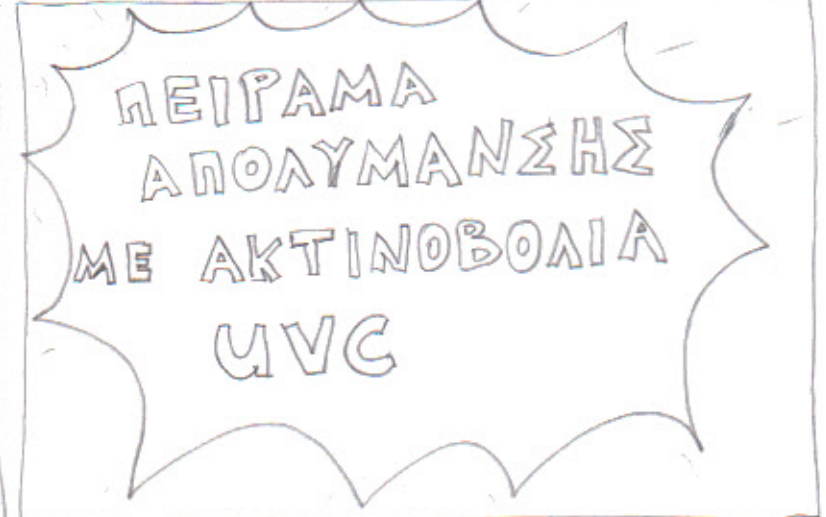 ΠΕΙΡΑΜΑ
ΑΠΟΛΥΜΑΝΣΗΣ
ΜΕ ΑΚΤΙΝΟΒΟΛΙΑ
UVC